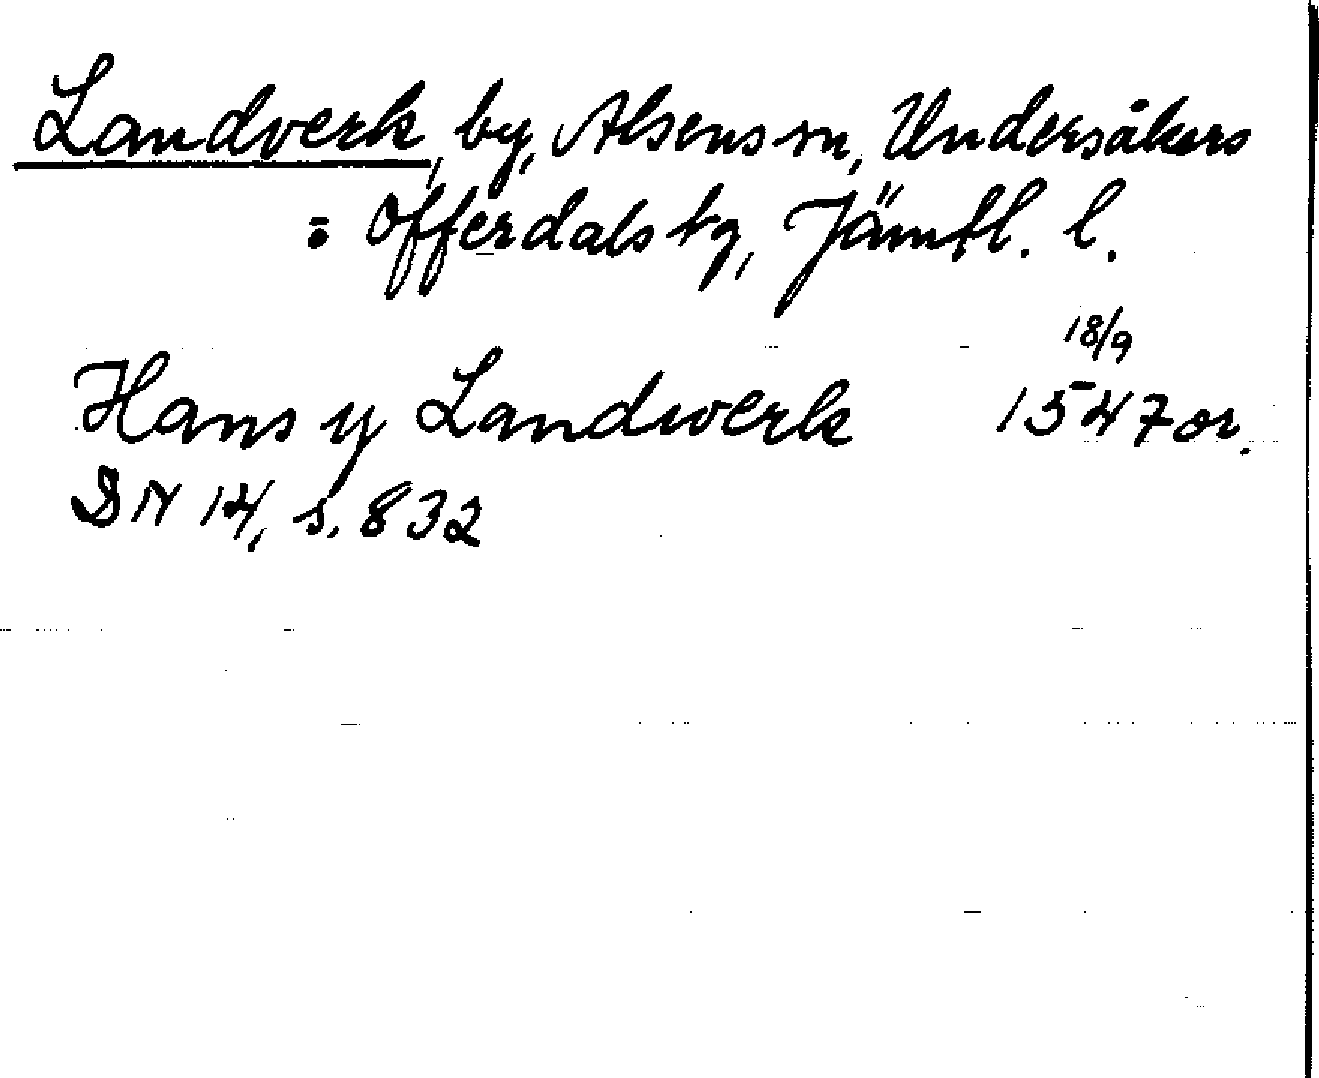 Landverk, by, Alsens sn, Undersåkers
: Offerdals tg, Jämtl. l.
18/9
Hans y Landwerk 1547 or.
DN 14, s. 832